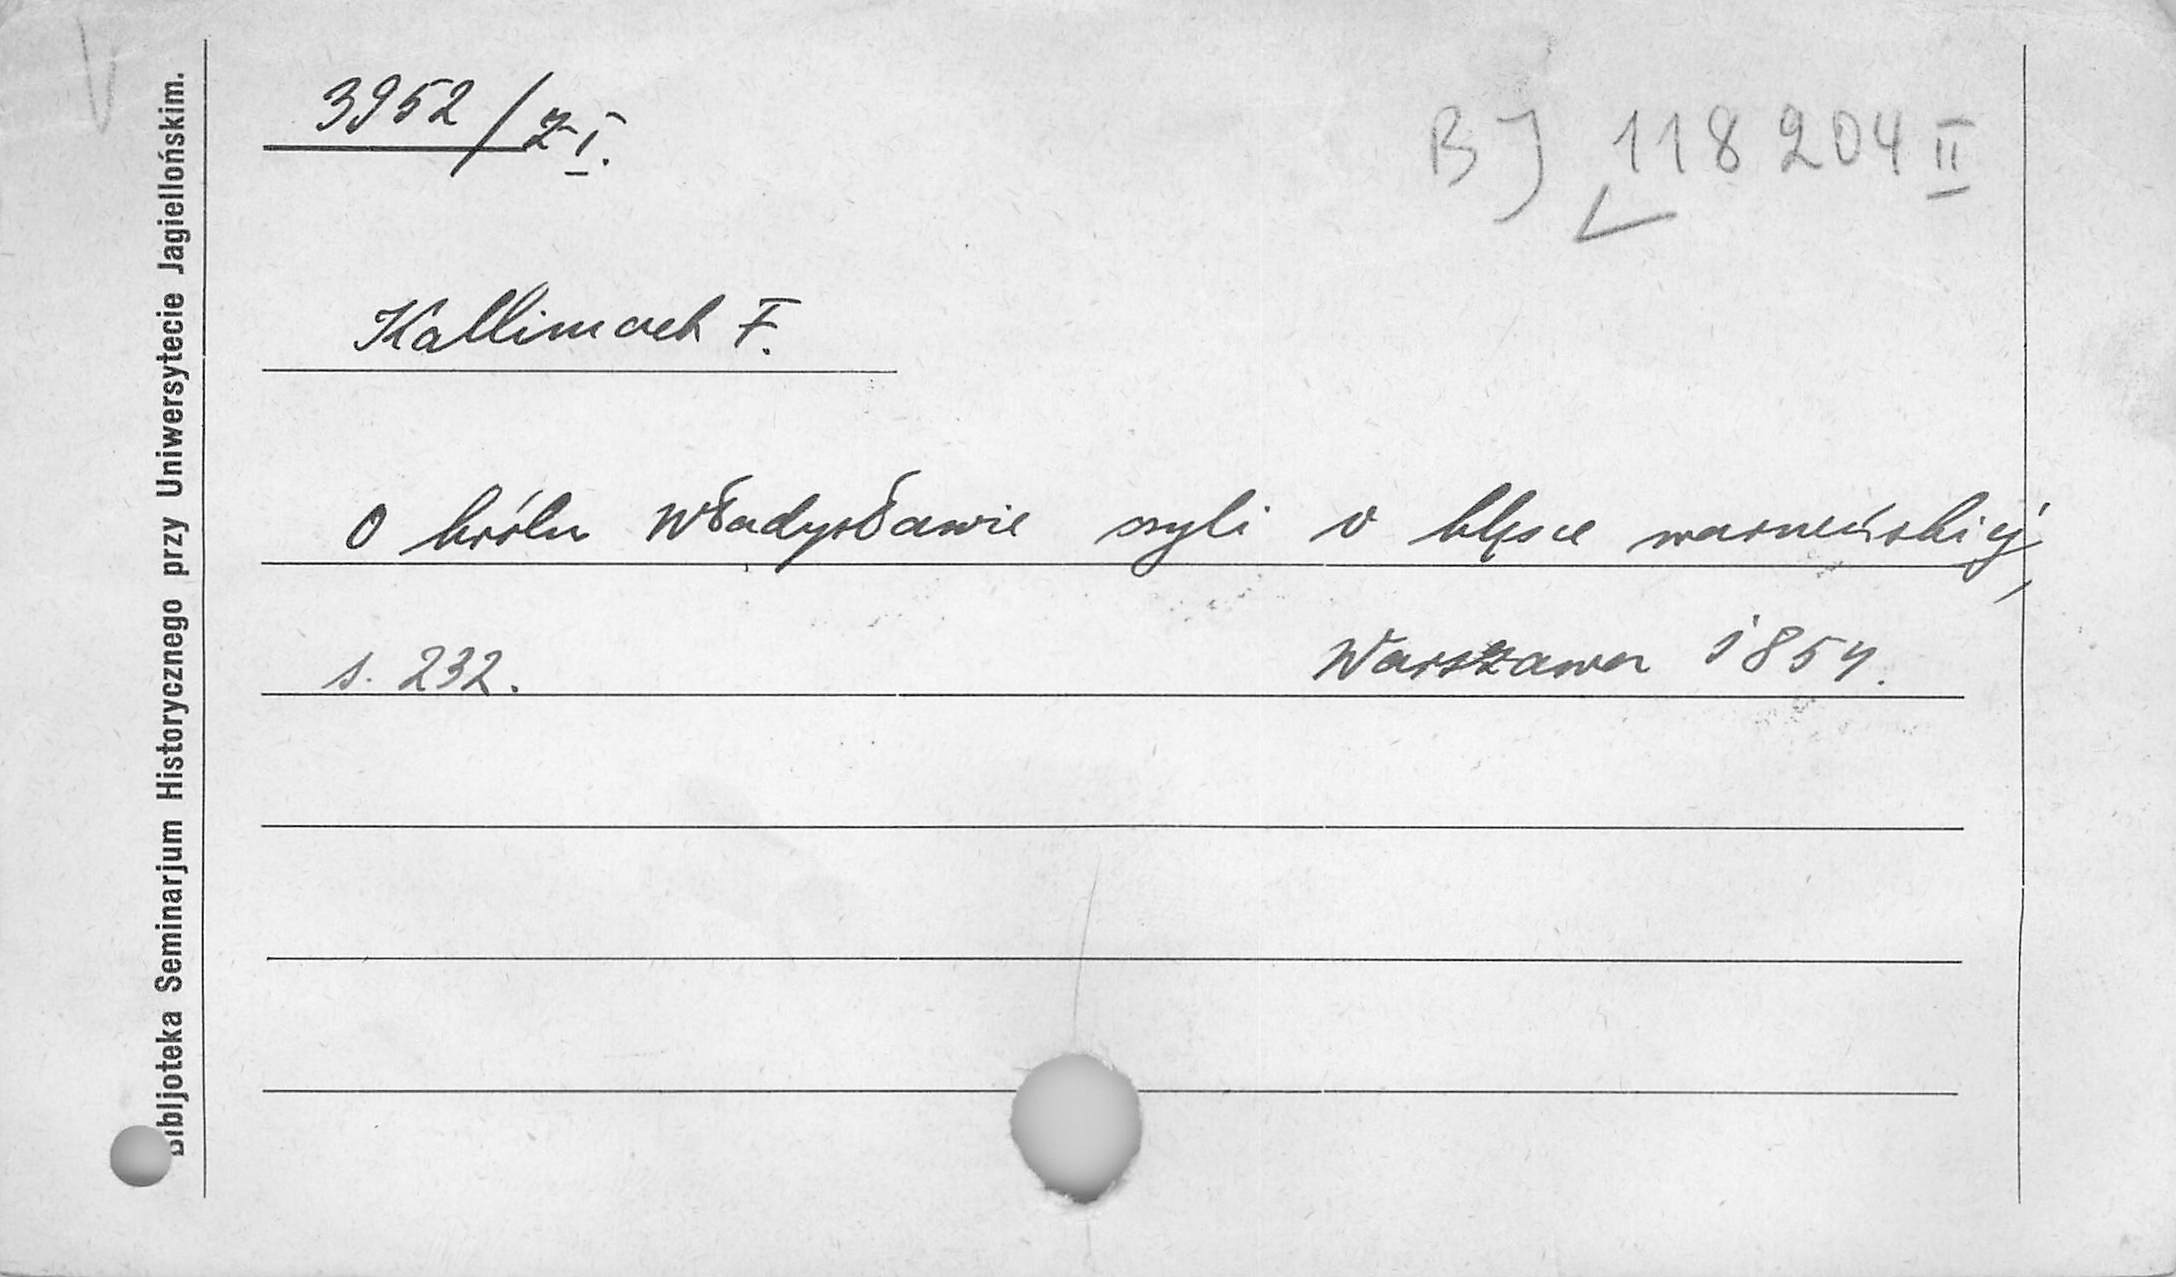 3952/Z I.
BJ 118 204 II
Kallimach F.
O królu Władysławie czyli o klęsce warneńskiej,
s. 232. Warszawa 1854.
Bibljoteka Seminarjum Historycznego przy Uniwersytecie Jagiellońskim.